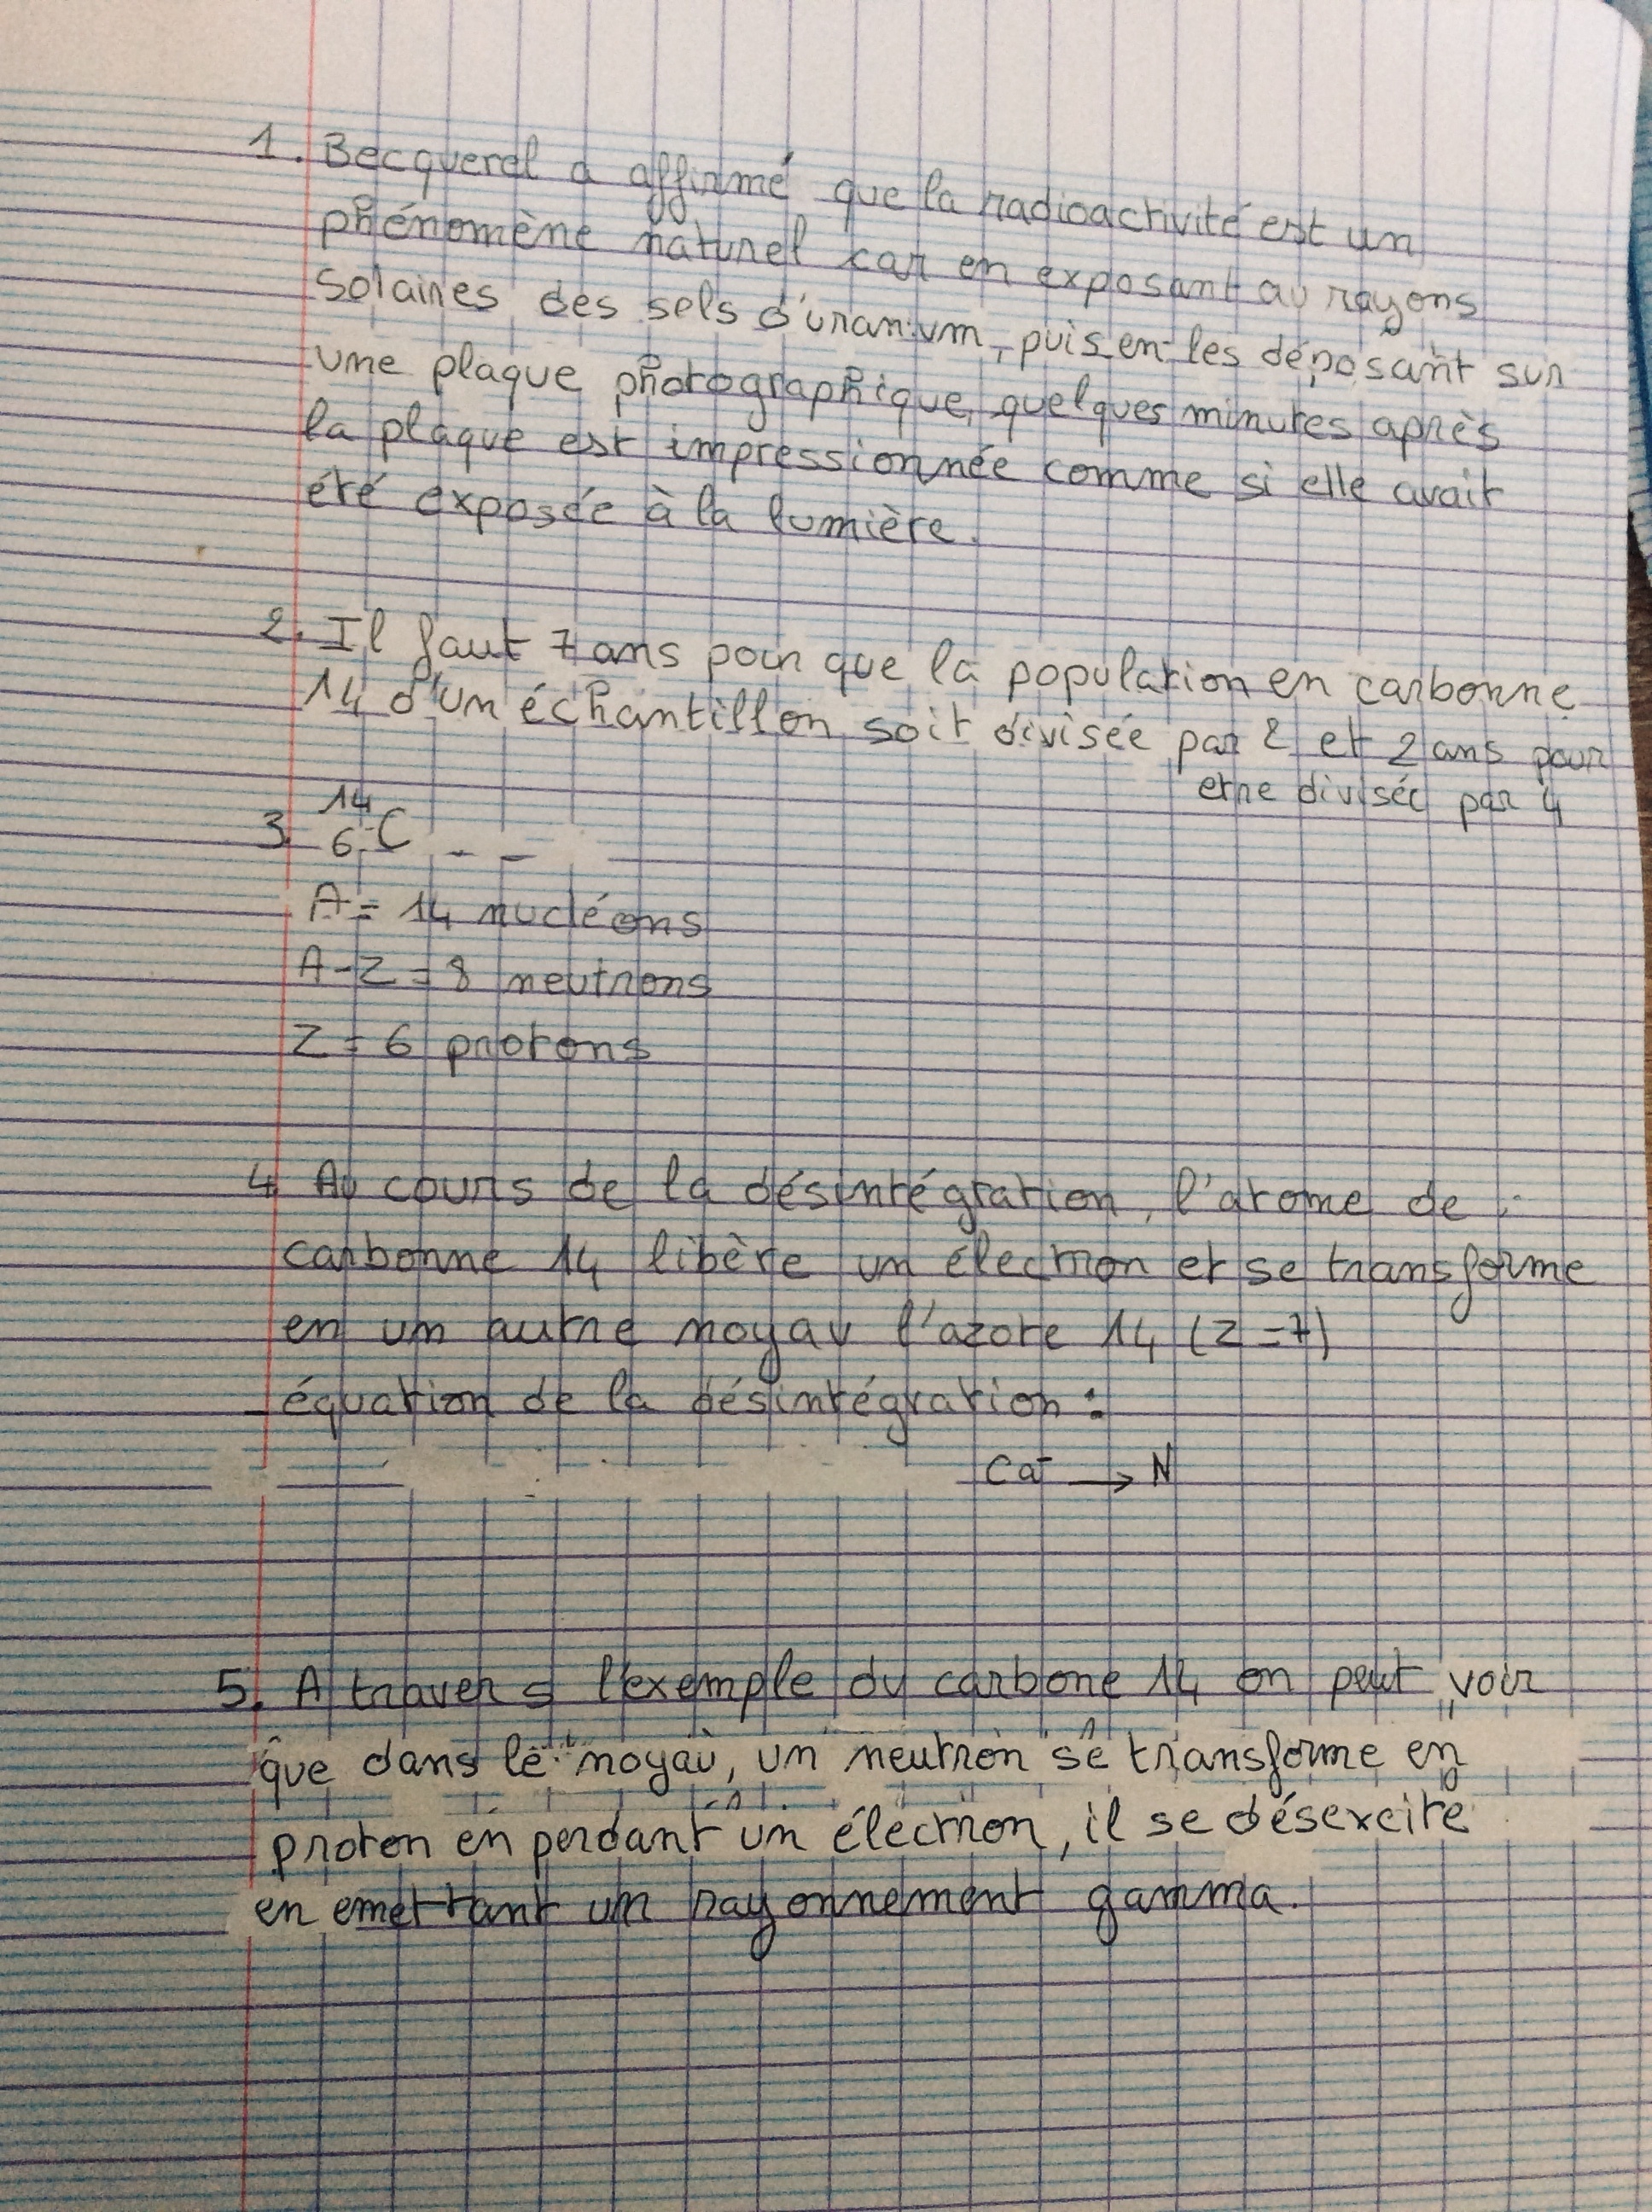 1. Becquerel a affirmé que la radioactivité est un
phénomène naturel car en exposant au rayons
solaires des sels d'uranium, puis en les déposant sur
une plaque photographique, quelques minutes après
la plaque est impressionnée comme si elle avait
été exposée à la lumière.
2. Il faut 7 ans pour que la population en carbonne
14 d'un échantillon soit divisée par 2 et 2 ans pour
etre divisée par 4
3. ¹⁴₆C
A = 14 nucléons
A-Z = 8 neutrons
Z = 6 protons
4. Au cours de la désintégration, l'atome de
carbonne 14 libère un électron et se transforme
en un autre noyau l'azote 14 (Z=7)
équation de la désintégration :
Ca → N
5. A travers l'exemple du carbone 14 on peut voir
que dans le noyau, un neutron se transforme en
proton en perdant un électron, il se désexcite
en emettant un rayonnement gamma.